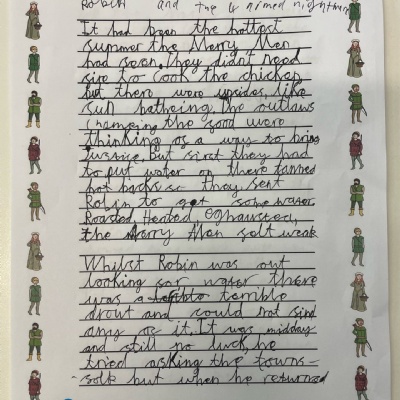 Robin and the 4 armed nightmare
It had been the hottest
summer the Merry Men
had seen. they didnt need
fire to cook the chicken
but there were upsides, like
sun batheing, the outlaws
the good were
thinking of a way to bring
Justice, but first they had
to put water on there tanned
hot backs so they sent
Robin to get some water
Roasted, Heated, Exhausted,
the Merry Men felt weak
Whilst Robin was out
looking for water there
was a terrible
drout and could not find
any of it. It was midday
and still no luck, he
tried asking the towns-
folk but when he returned